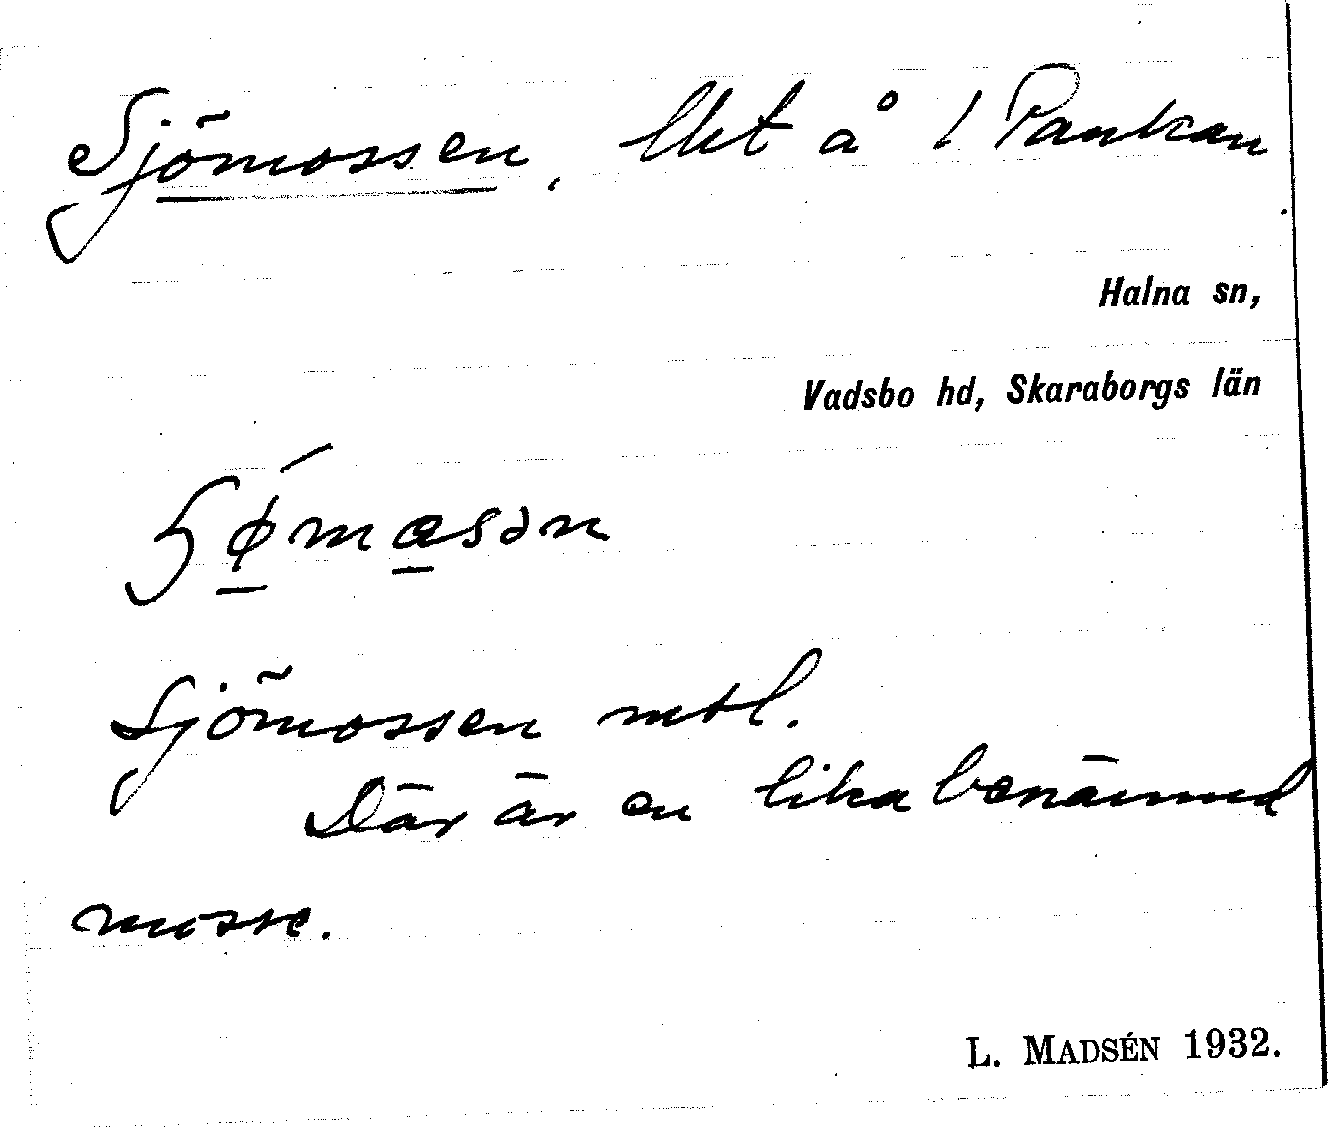 Sjömossen, lht å 1 Pankan
Halna sn,
Vadsbo hd, Skaraborgs län
Sjömossen mtl.
Där är en lika benämnd
mosse.
L. MADSÉN 1932.